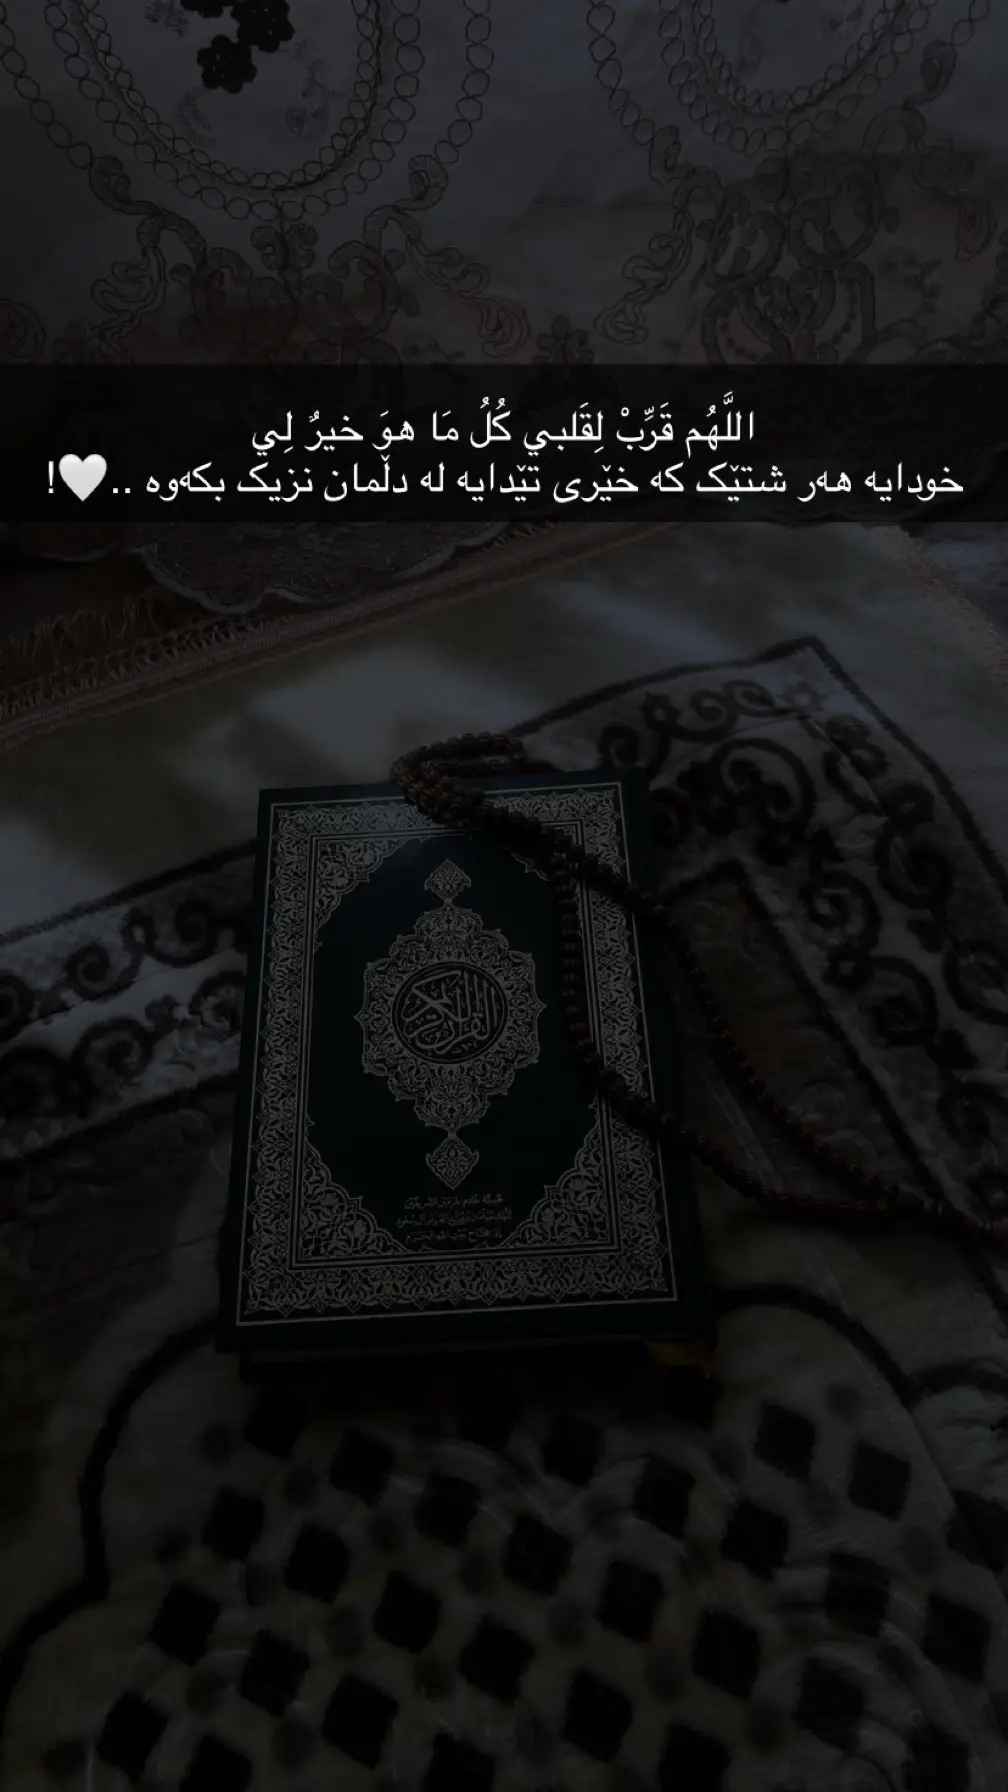 اللَّهُم قَرِّبْ لِقَلبي كُلُ مَا هوَ خيرٌ لِي
خودایە هەر شتێک کە خێری تێدایە لە دڵمان نزیک بکەوە ..🤍!
القرآن الكريم